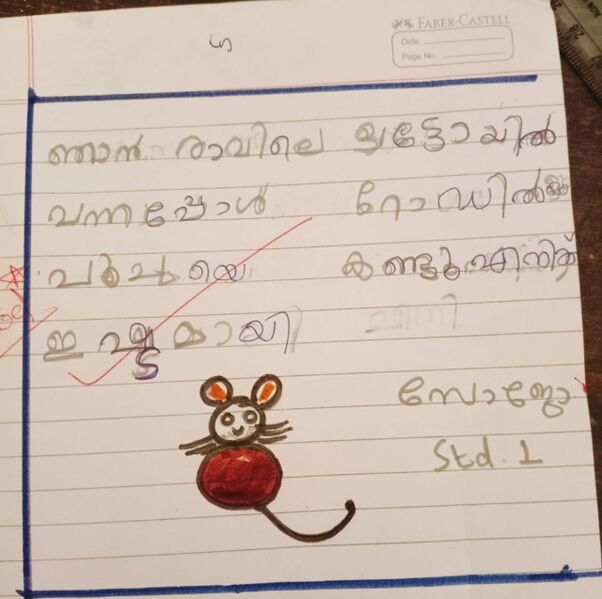 FABER-CASTELL
Date
Page No.
ഞാൻ രാവിലെ ഓട്ടോയിൽ
വന്നപ്പോൾ റോഡിൽ
കണ്ടു എനിക്ക്
ഇഷ്ടമായി
Std. 1